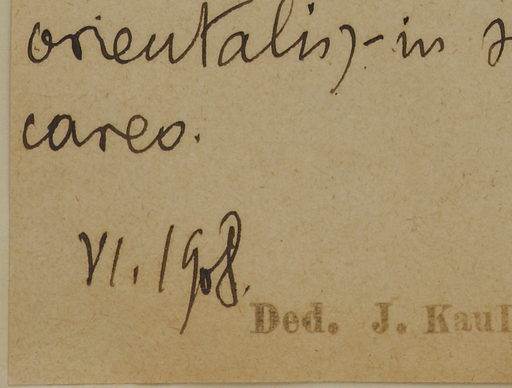 orientalis)-in
careo.
VI. 1908.
Ded. J. Kaul